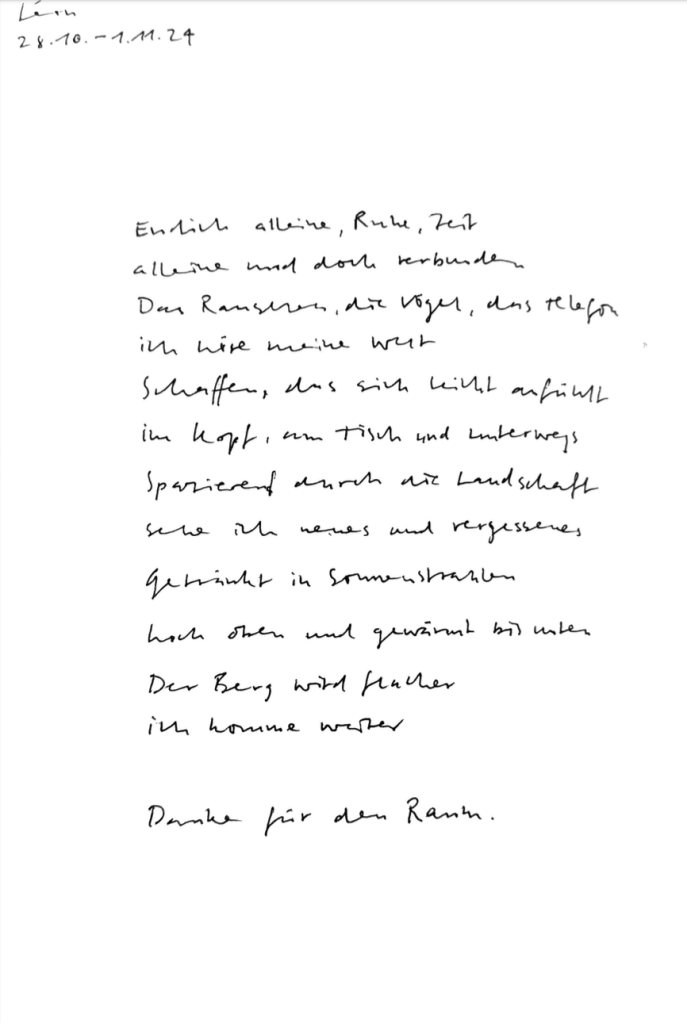 28.10.-1.11.24
Endlich alleine, Ruhe, Zeit
alleine und doch verbunden
Das Rauschen, die Vögel, das Telefon
ich höre meine Welt
Schaffen, das sich leicht anfühlt
im Kopf, am Tisch und unterwegs
Spazierend durch die Landschaft
sehe ich neues und vergessenes
Getränkt in Sonnenstrahlen
hoch oben und gewärmt bis unten
Der Berg wird flacher
ich komme weiter
Danke für den Raum.